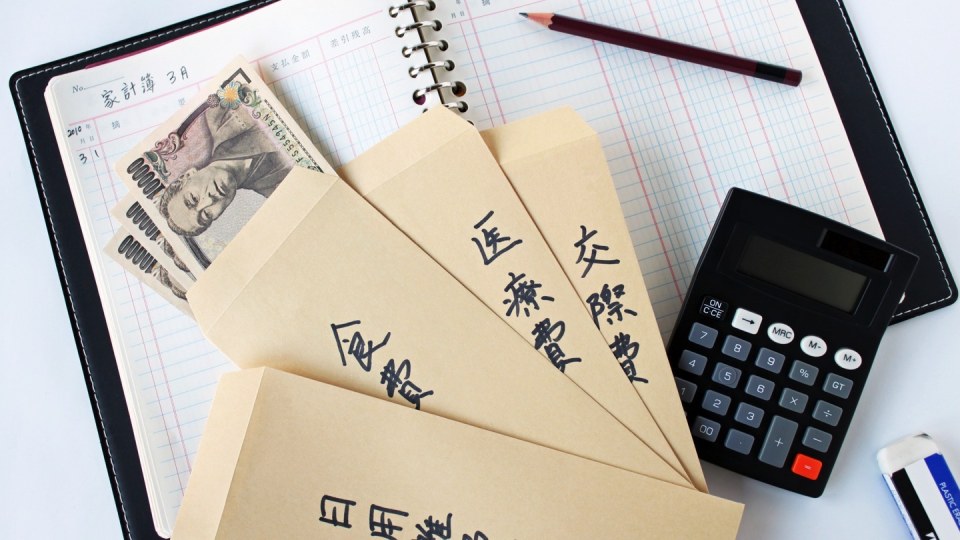 No.
家計簿 3月
支払金額
差引残高
2010年
月日
摘
3 1
10000
食費
医療費
交際費
日用雑
ON
C・CE
→
MRC
M-
M+
7 8 9 % GT
4 5 6 × ÷
2 3 + −
00 . =
PLASTIC